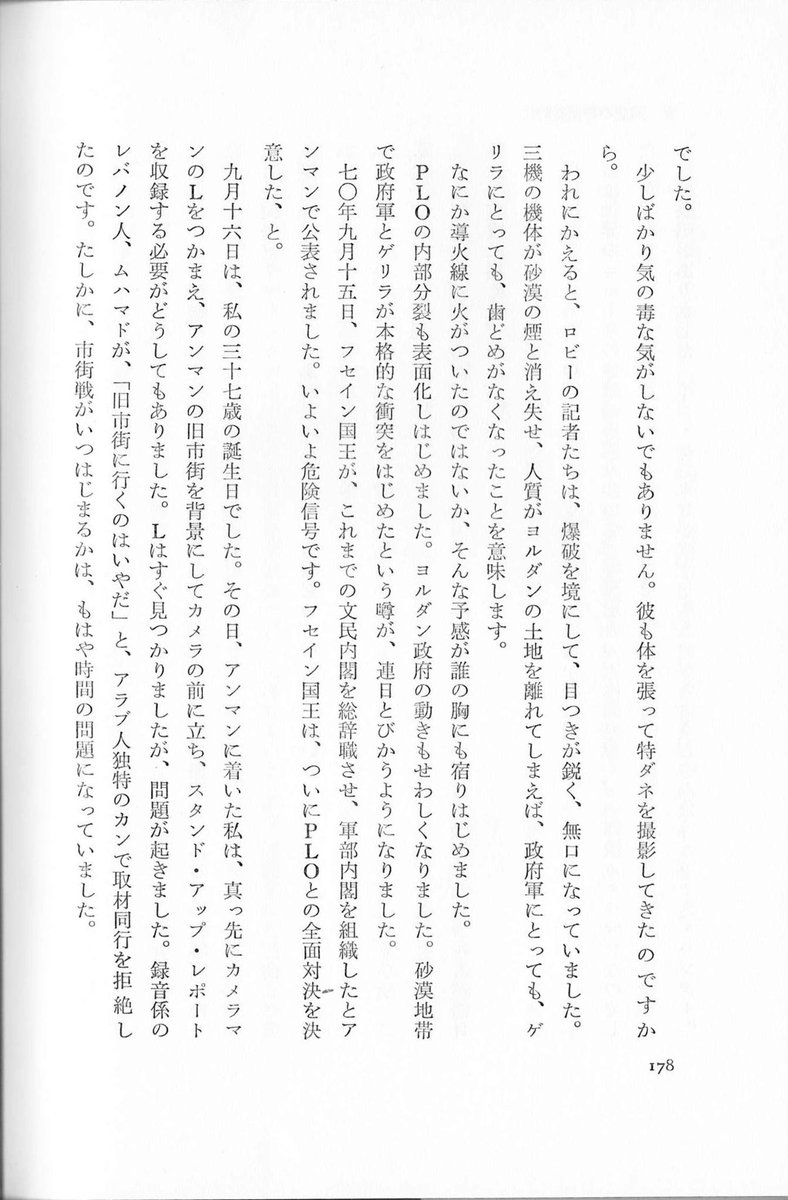 でした。
少しばかり気の毒な気がしないでもありません。彼も体を張って特ダネを撮影してきたのですか
ら。
われにかえると、ロビーの記者たちは、爆破を境にして、目つきが鋭く、無口になっていました。
三機の機体が砂漠の煙と消え失せ、人質がヨルダンの土地を離れてしまえば、政府軍にとっても、ゲ
リラにとっても、歯どめがなくなったことを意味します。
なにか導火線に火がついたのではないか、そんな予感が誰の胸にも宿りはじめました。
PLOの内部分裂も表面化しはじめました。ヨルダン政府の動きもせわしくなりました。砂漠地帯
で政府軍とゲリラが本格的な衝突をはじめたという噂が、連日とびかうようになりました。
七〇年九月十五日、フセイン国王が、これまでの文民内閣を総辞職させ、軍部内閣を組織したとア
ンマンで公表されました。いよいよ危険信号です。フセイン国王は、ついにPLOとの全面対決を決
意した、と。
九月十六日は、私の三十七歳の誕生日でした。その日、アンマンに着いた私は、真っ先にカメラマ
ンのLをつかまえ、アンマンの旧市街を背景にしてカメラの前に立ち、スタンド・アップ・レポート
を収録する必要がどうしてもありました。Lはすぐ見つかりましたが、問題が起きました。録音係の
レバノン人、ムハマドが、「旧市街に行くのはいやだ」と、アラブ人独特のカンで取材同行を拒絶し
たのです。たしかに、市街戦がいつはじまるかは、もはや時間の問題になっていました。
178